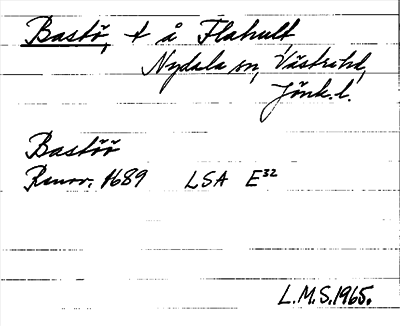 Bastö, t å Flahult
Nydala sn, Västra hd,
Jönk. l.
Bastöö
Renov. 1689 LSA E³²
L.M.S. 1965.